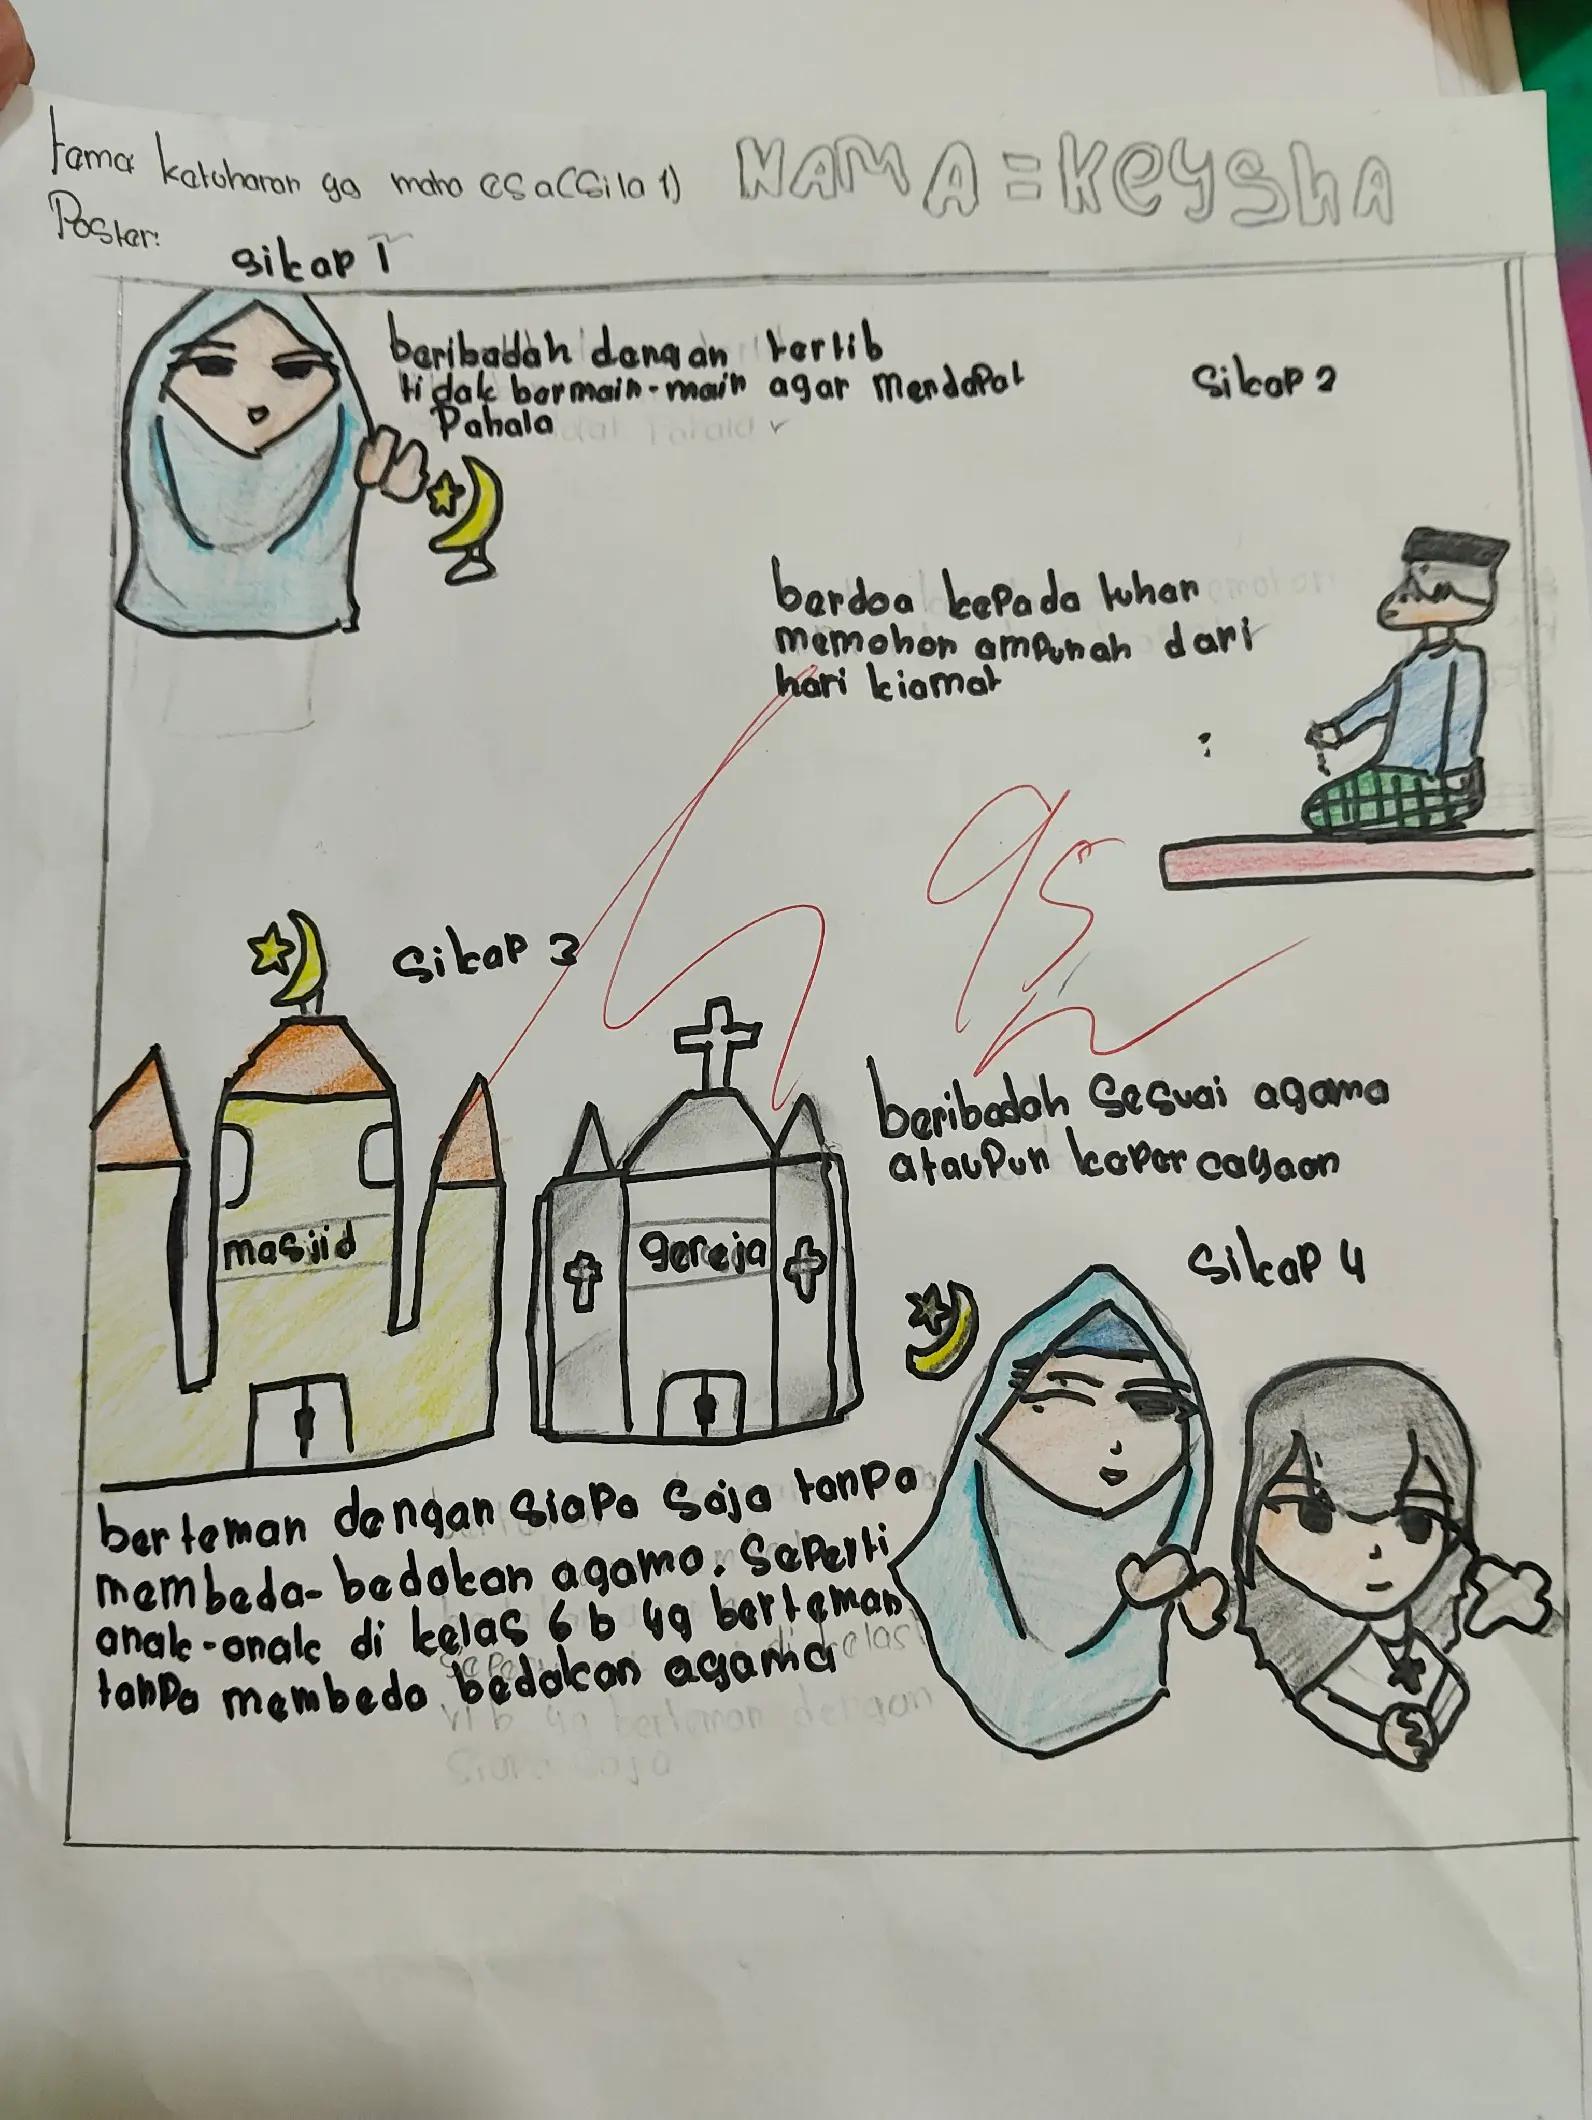 tema ketuhanan yg maha esa (sila 1)
NAMA = KEYSHA
Poster:
Sikap 1
beribadah dengan tertib
tidak bermain-main agar mendapat
Pahala
Sikap 2
berdoa kepada tuhan
memohon ampunah dari
hari kiamat
95
Sikap 3
masjid
gereja
beribadah Sesuai agama
ataupun kepercayaan
Sikap 4
berteman dengan Siapa Saja tanpa
membeda-bedakan agama. Seperti
anak-anak di kelas 6 b yg berteman
tanpa membeda bedakan agama